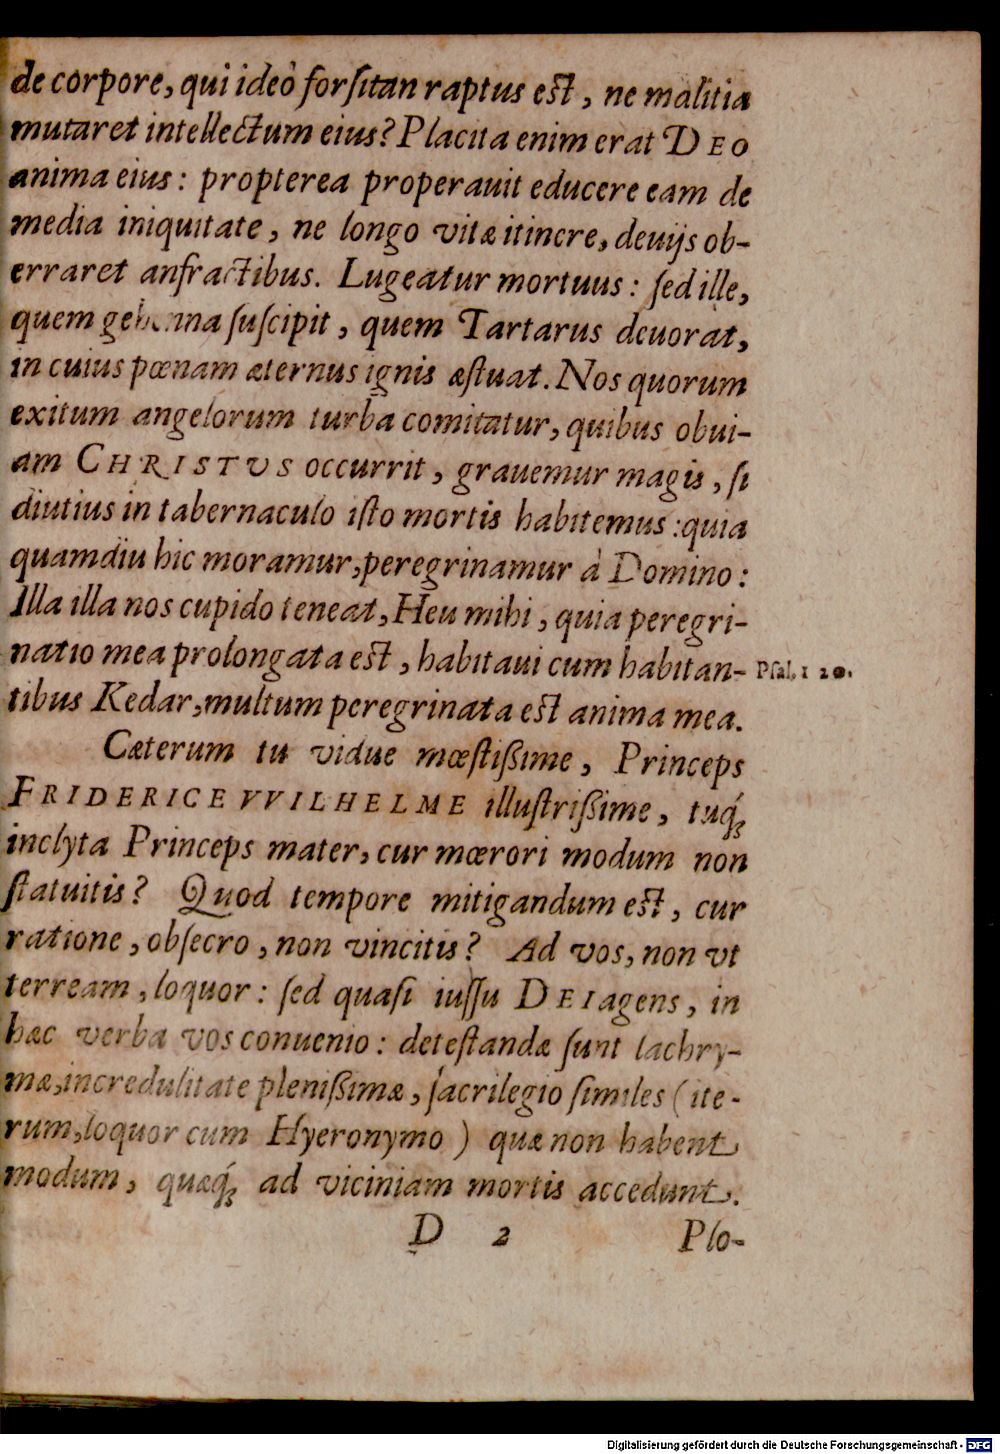 de corpore, qui ideò forſitan raptus eſt, ne malitia
mutaret intellectum eius? Placita enim erat DEO
anima eius: propterea properauit educere eam de
media iniquitate, ne longo vitæ itinere, deuijs ob-
erraret anfractibus. Lugeatur mortuus: ſed ille,
quem gehenna ſuſcipit, quem Tartarus deuorat,
in cuius pœnam æternus ignis æſtuat. Nos quorum
exitum angelorum turba comitatur, quibus obui-
am CHRISTVS occurrit, grauemur magis, ſi
diutius in tabernaculo iſto mortis habitemus: quia
quamdiu hic moramur, peregrinamur à Domino:
Illa illa nos cupido teneat, Heu mihi, quia peregri-
natio mea prolongata eſt, habitaui cum habitan-
Pſal. 120.
tibus Kedar, multum peregrinata eſt anima mea.
Cæterum tu vidue mœſtißime, Princeps
FRIDERICE VVILHELME illuſtrißime, tuq́;
inclyta Princeps mater, cur mœrori modum non
ſtatuitis? Quod tempore mitigandum eſt, cur
ratione, obſecro, non vincitis? Ad vos, non vt
terream, loquor: ſed quaſi iuſſu DEI agens, in
hæc verba vos conuenio: deteſtandæ ſunt lachry-
mæ, incredulitate plenißimæ, ſacrilegio ſimiles (ite-
rum, loquor cum Hyeronymo) quæ non habent
modum, quæq́; ad viciniam mortis accedunt.
D 2 Plo-
Digitalisierung gefördert durch die Deutsche Forschungsgemeinschaft - DFG